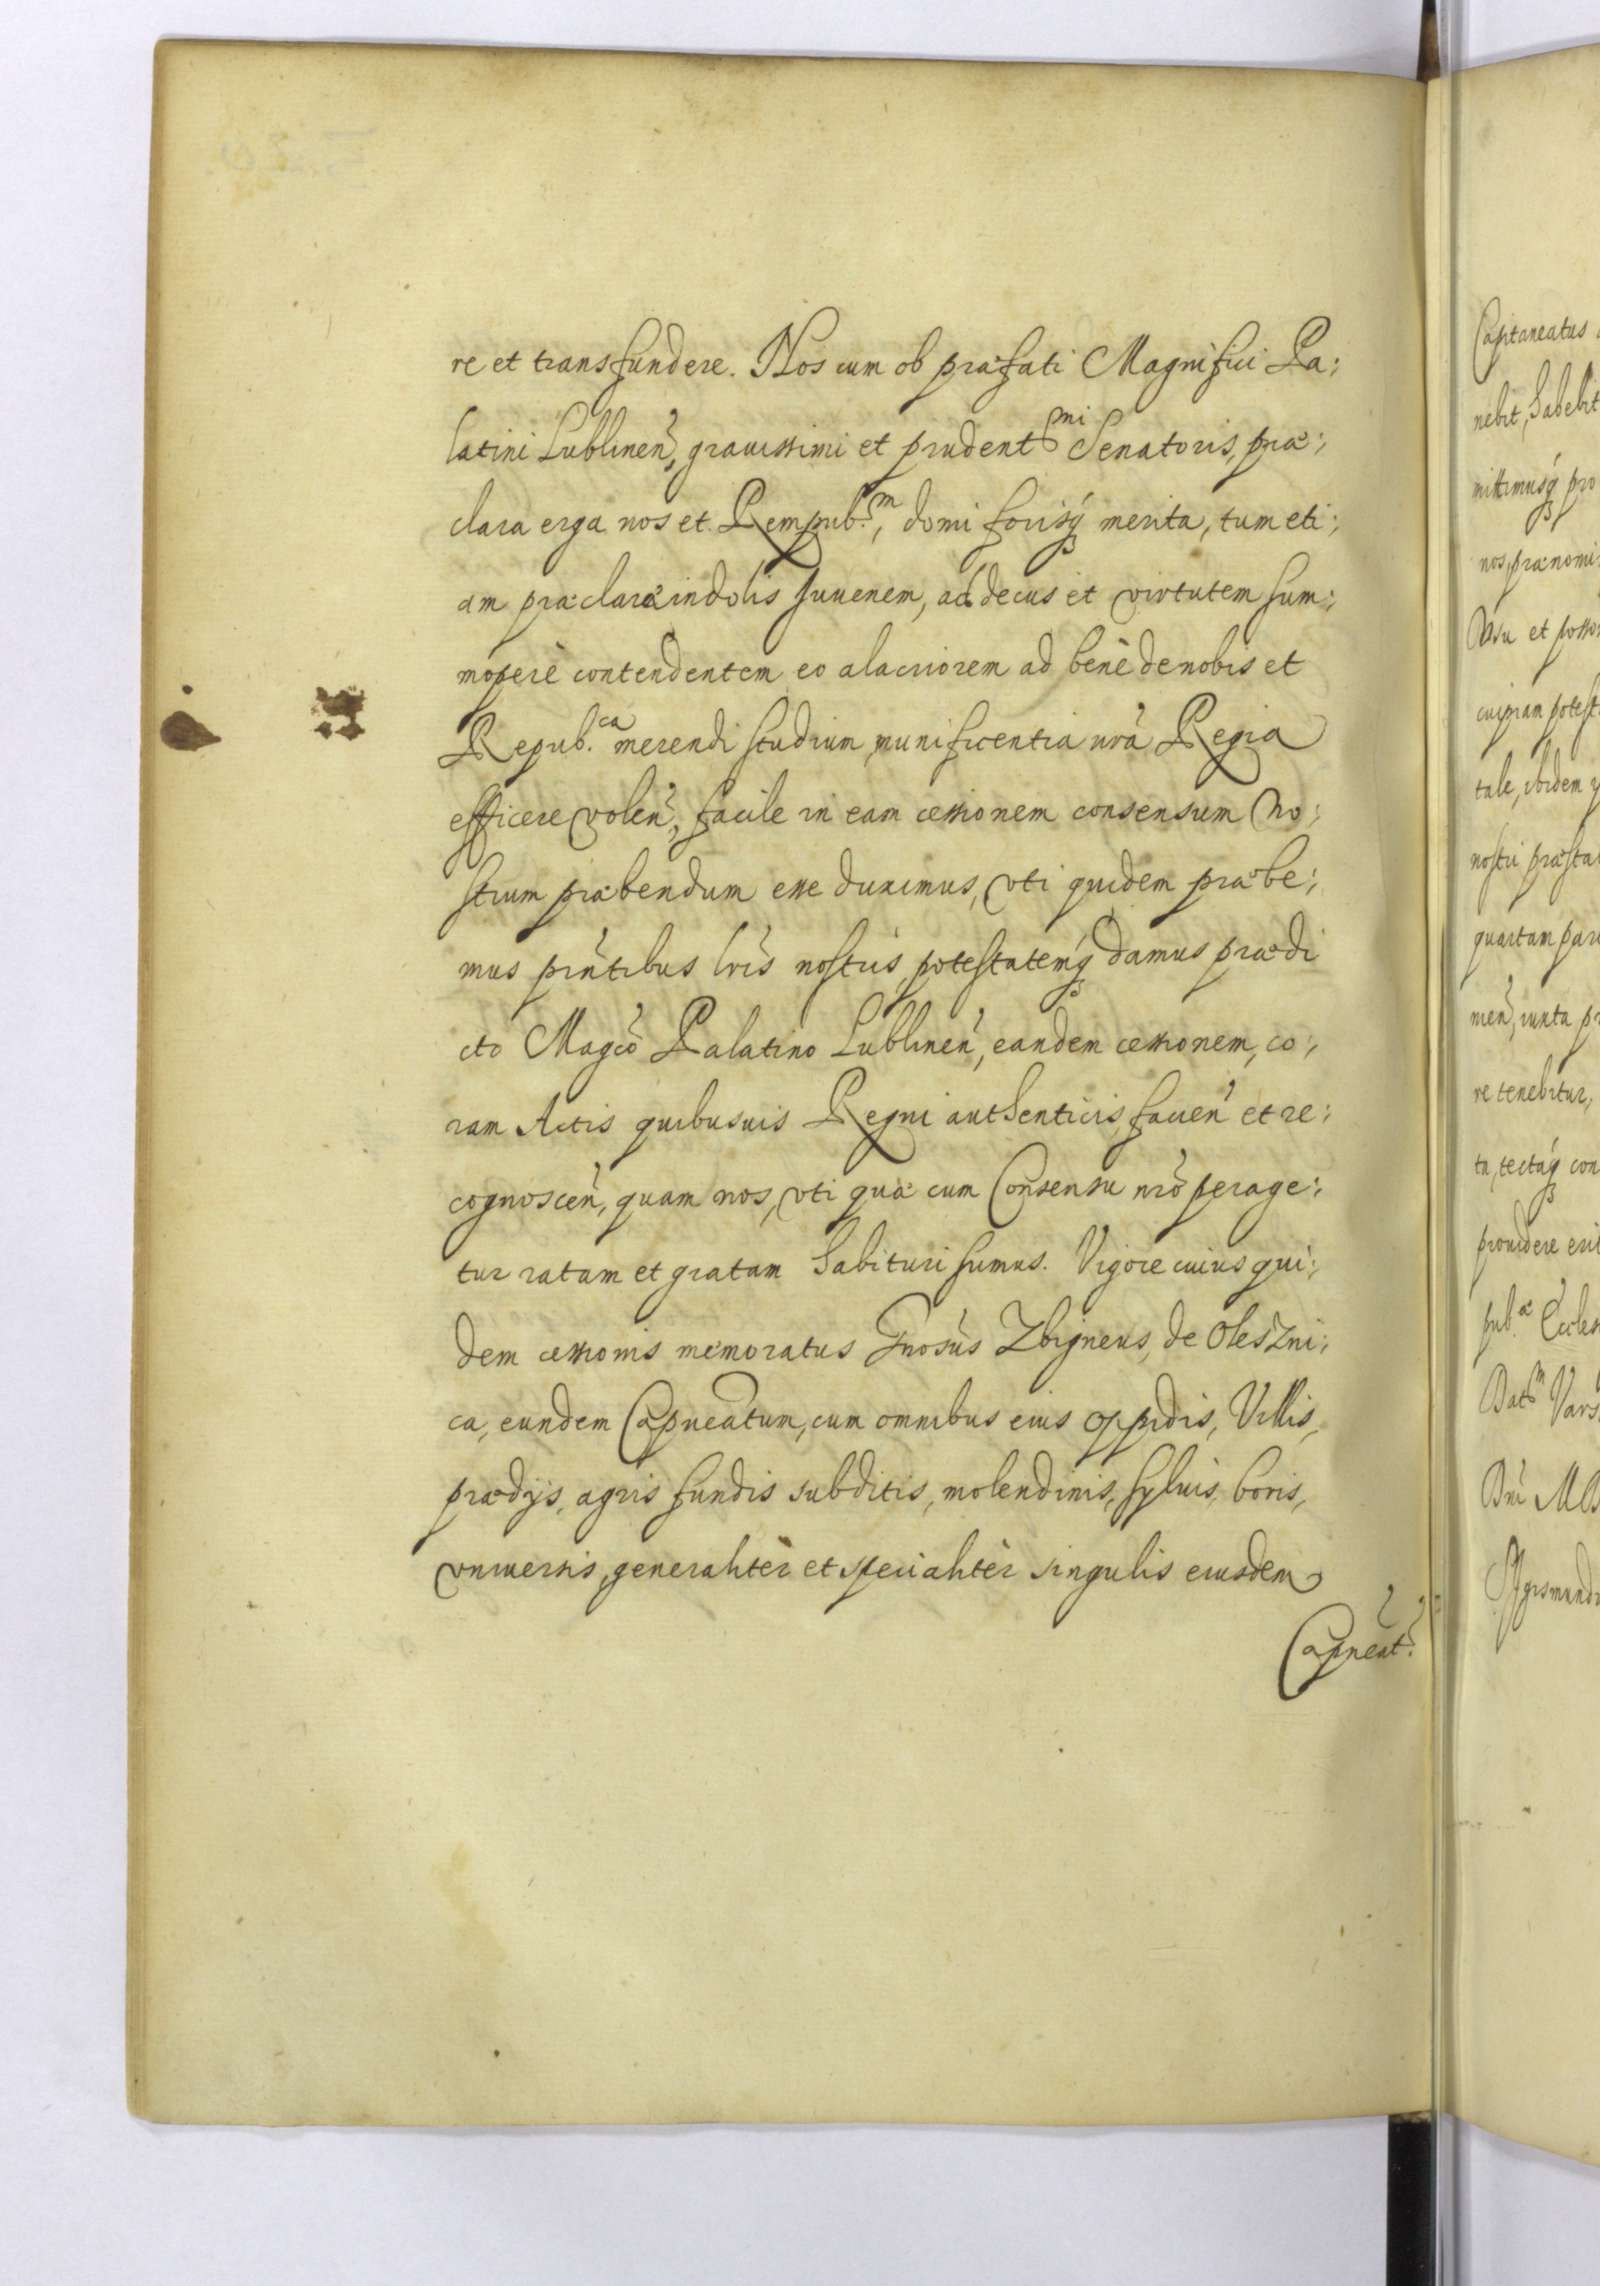 re et transfundere. Nos cum ob præfati Magnifici Pa:
latini Lublinen̄, grauissimi et prudent^mi Senatoris, præ:
clara erga nos et Rempub.^m, domi forisq́ merita, tum eti:
am præclaræ indolis Juuenem, ad decus et virtutem sum:
moperè contendentem eo alacriorem ad benè de nobis et
Repub.^ca merendi studium munificentia nr̄a Regia
efficere volen̄, facile in eam cessionem consensum no:
strum præbendum esse duximus, vti quidem præbe:
mus pn̄tibus lrīs nostris, potestatemq́ damus prædi
cto Magcō Palatino Lublinen̄, eandem cessionem, co:
ram Actis quibusuis Regni authenticis, facien̄ et re:
cognoscen̄, quam nos, vti quæ cum Consensu nrō perage:
tur ratam et gratam habituri sumus. Vigore cuius qui:
dem cessionis memoratus Gnosūs Zbigneus, de Oleszni:
ca, eundem Capneātum, cum omnibus eius oppidis, Villis,
prædijs, agris fundis subditis, molendinis, syluis, boris,
vniuersis, generalitèr et specialitèr singulis eiusdem
Capneāt.
Capitaneatus
nebit, habebit
mittimusq́ pro
nos, prænomi
Vsu et posses
cuipiam potest
tale, ibidem
nostri præsta
quartam par
men̄, iuxta pr
re tenebitur,
ta, tectaq́ con
prouidere eri
pub.^æ Eccles
Dat^m Vars
Dnī MD
Sigismund